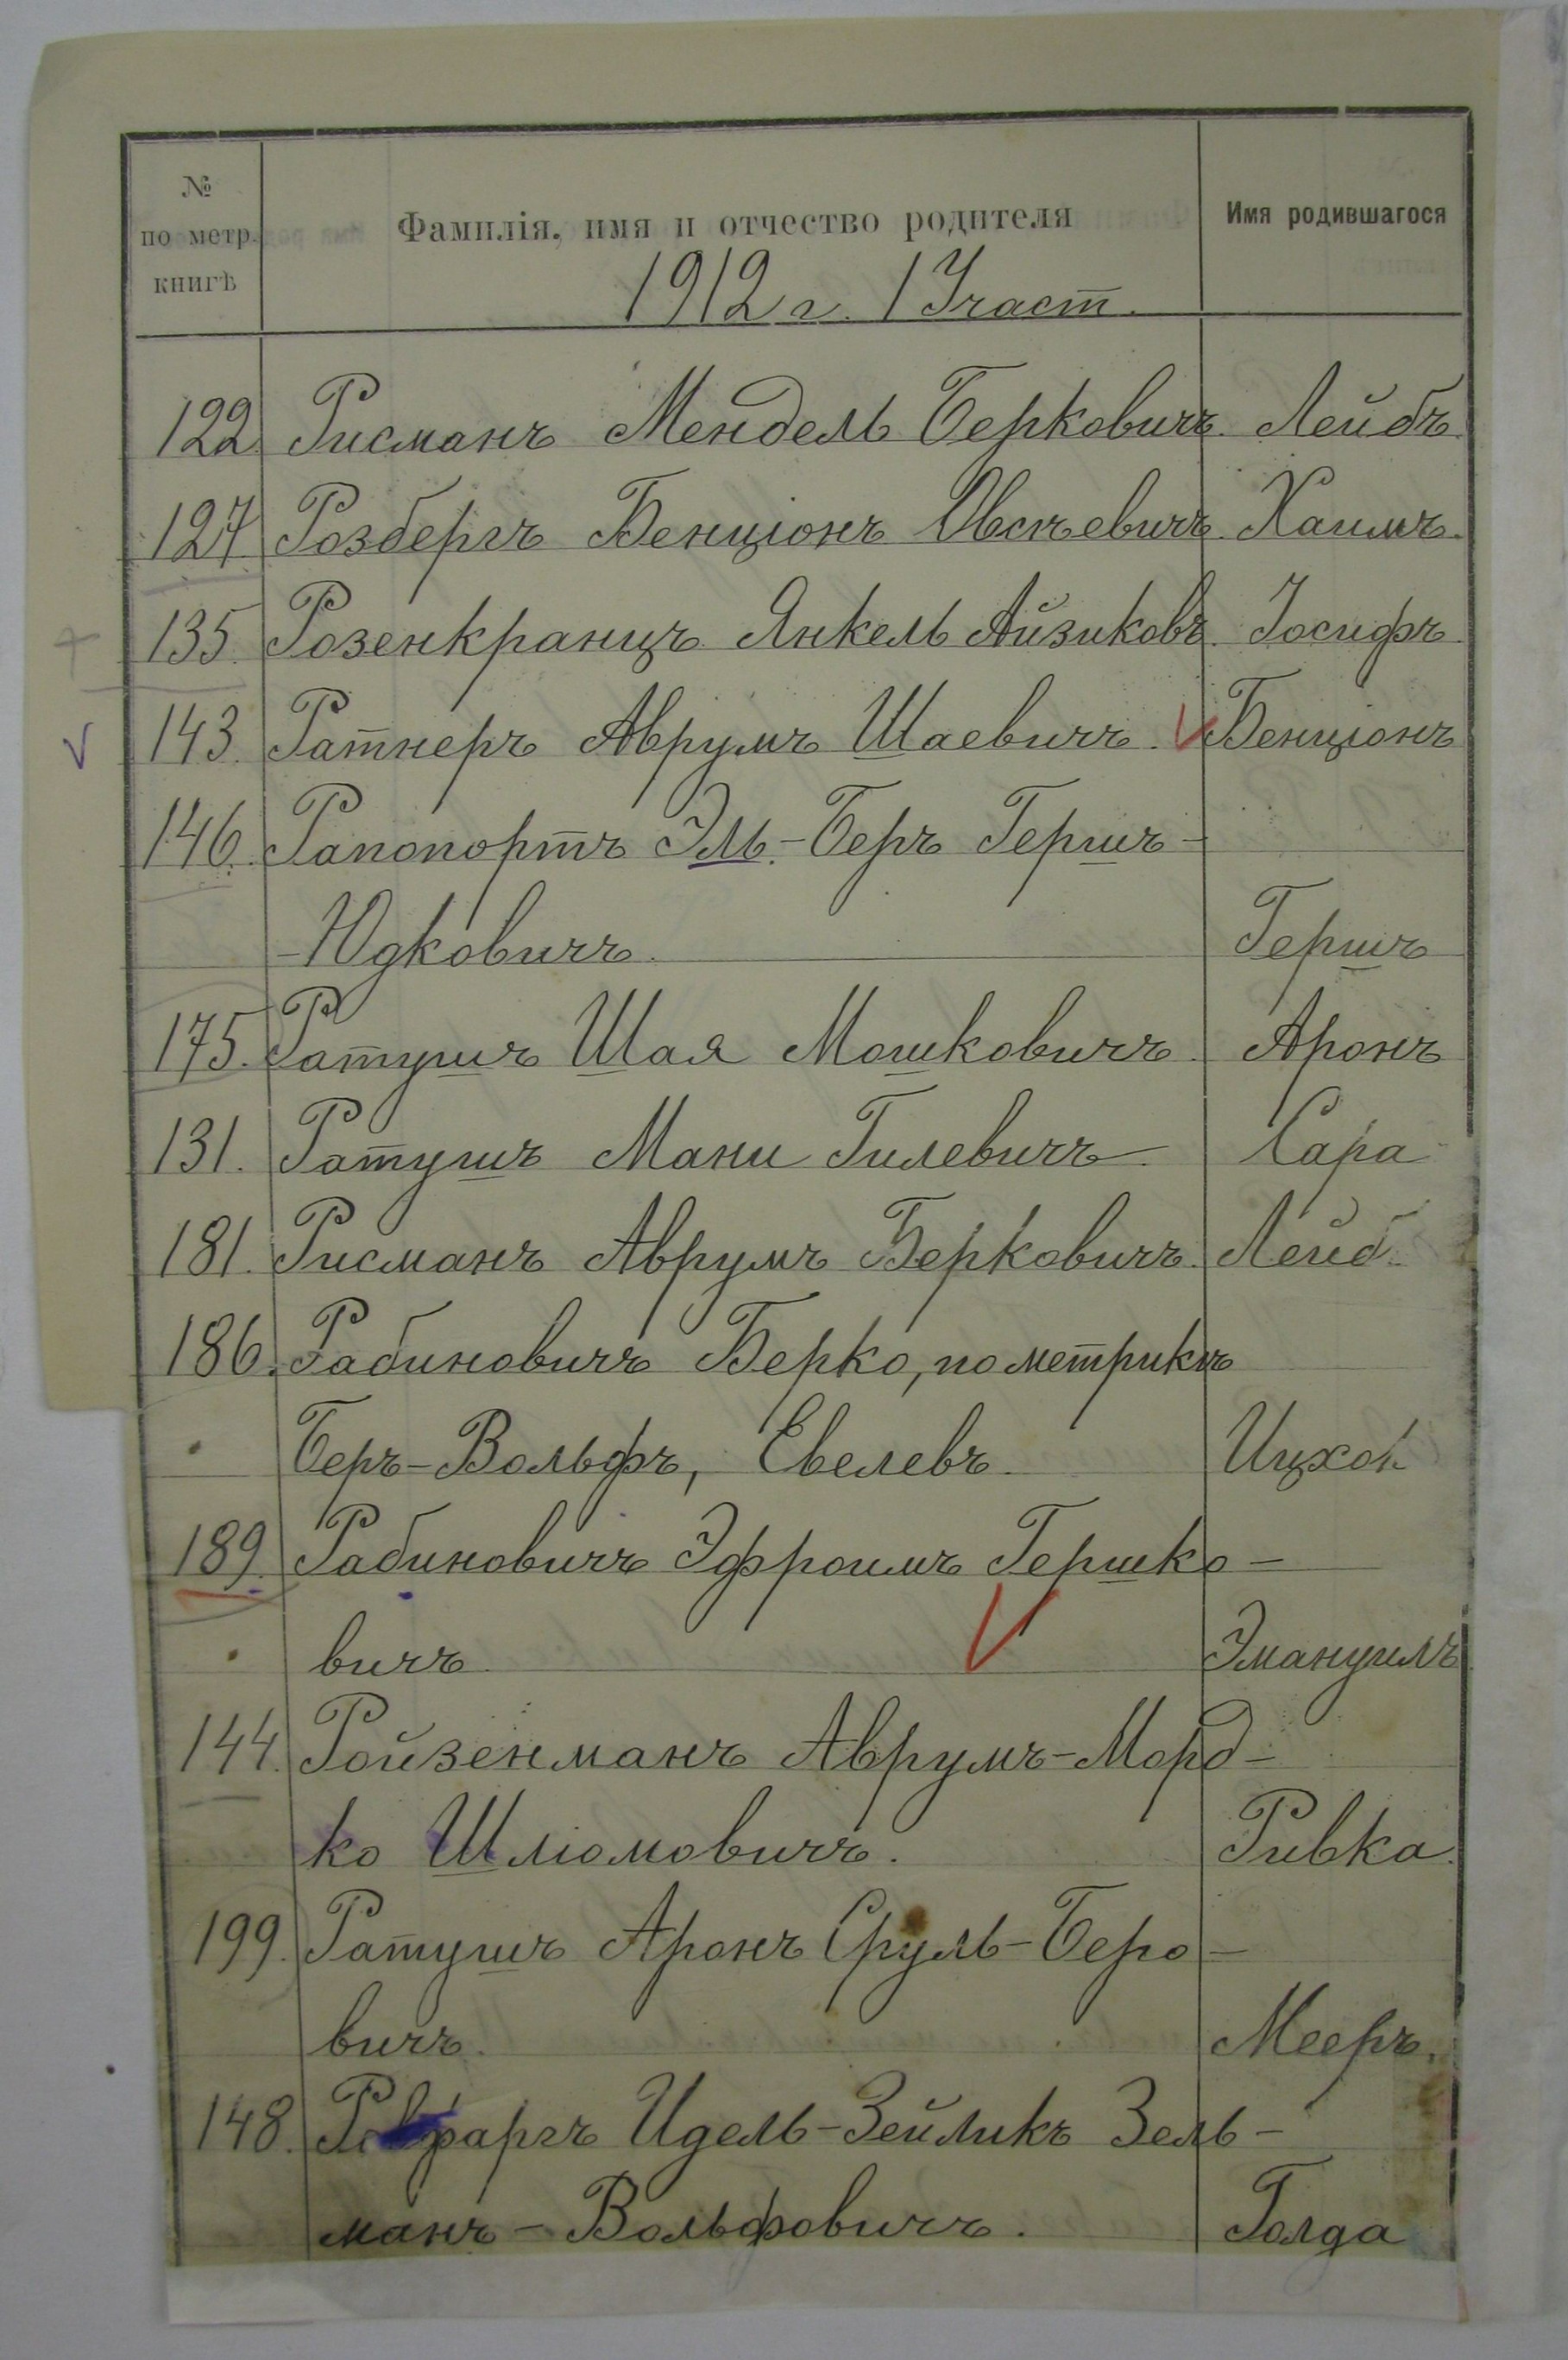 № по метр. книгѣ
Фамилія, имя и отчество родителя
Имя родившагося
1912 г. 1 Участ.
122. Рисманъ Мендель Берковичъ. Лейбъ.
127 Розбергъ Бенціонъ Овсѣевичъ. Хаимъ.
135. Розенкранцъ Янкель Айзиковъ. Іосифъ.
143. Ратнеръ Аврумъ Шаевичъ. Бенціонъ
146. Рапопортъ Эль-Беръ Гершъ-
-Юдковичъ. Гершъ
175. Ратушъ Шая Мошковичъ. Аронъ
131. Ратушъ Мани Гилевичъ. Сара
181. Рисманъ Аврумъ Берковичъ. Лейб
186. Рабиновичъ Берко, по метрикѣ
Беръ-Вольфъ, Евелевъ. Ицхок
189. Рабиновичъ Эфроимъ Гершко-
вичъ. Эмануилъ
144. Ройзенманъ Аврумъ-Морд-
ко Шліомовичъ. Ривка.
199. Ратушъ Аронъ Сруль-Беро-
вичъ. Мееръ.
148. Идель-Зейликъ Зель-
манъ-Вольфовичъ. Голда